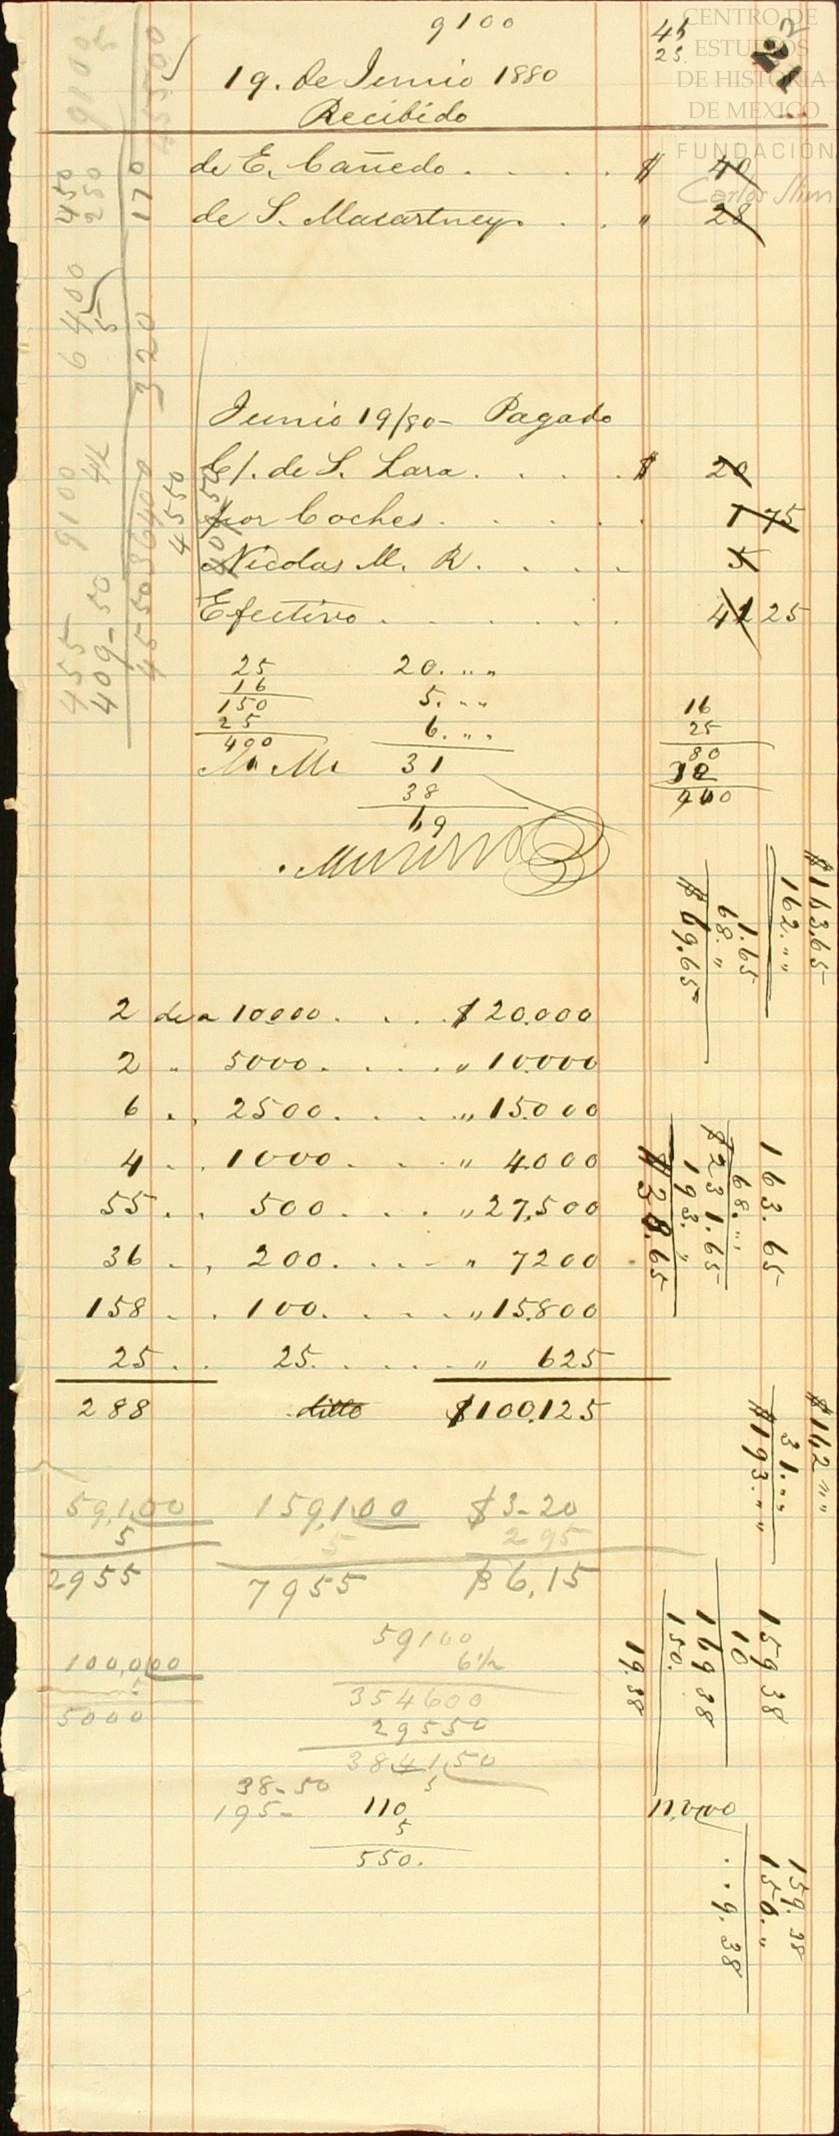 9100
45
25
19. de Junio 1880
Recibido
de E. Cañedo . . . . . $ 40
de S. Macartney . . . " 28
Junio 19/80 - Pagado
C/. de S. Lara . . . . . $ 20
por Coches . . . . . 1 75
Nicolas M. R. . . . . 5
Efectivo . . . . . . . 41 25
25
16
150
25
400
20. " "
5. " "
6. " "
31
38
69
16
25
80
32
400
2 de a 10000 . . . . $ 20.000
2 " 5000 . . . . . " 10.000
6 . , 2500 . . . . " 15.000
4 . . 1000 . . . . " 4.000
55 . . 500 . . . . " 27,500
36 . , 200 . . . . " 7200
158 . . 100 . . . . " 15.800
25 . . 25 . . . . " 625
288 ditto $100.125
59,100
5
2955
159,100
5
7955
$3-20
295
$6,15
100,000
5
5000
59100
6 1/2
354600
29550
384150
5
38-50
195-
110
5
550.
11,000
$163.65
162. " "
1.65
68. "
$69.65
163.65
68. " "
$231.65
193. "
$38.65
$162 " "
31. " "
$193. " "
159 38
10
169 38
150.
19.38
159.38
150. "
. . 9.38
9100
5
45500
450
250
170
6400
5
320
9100
4 1/2
36400
4550
40950
455
409-50
45-50
CENTRO DE
ESTUDIOS
DE HISTORIA
DE MEXICO
FUNDACIÓN
Carlos Slim